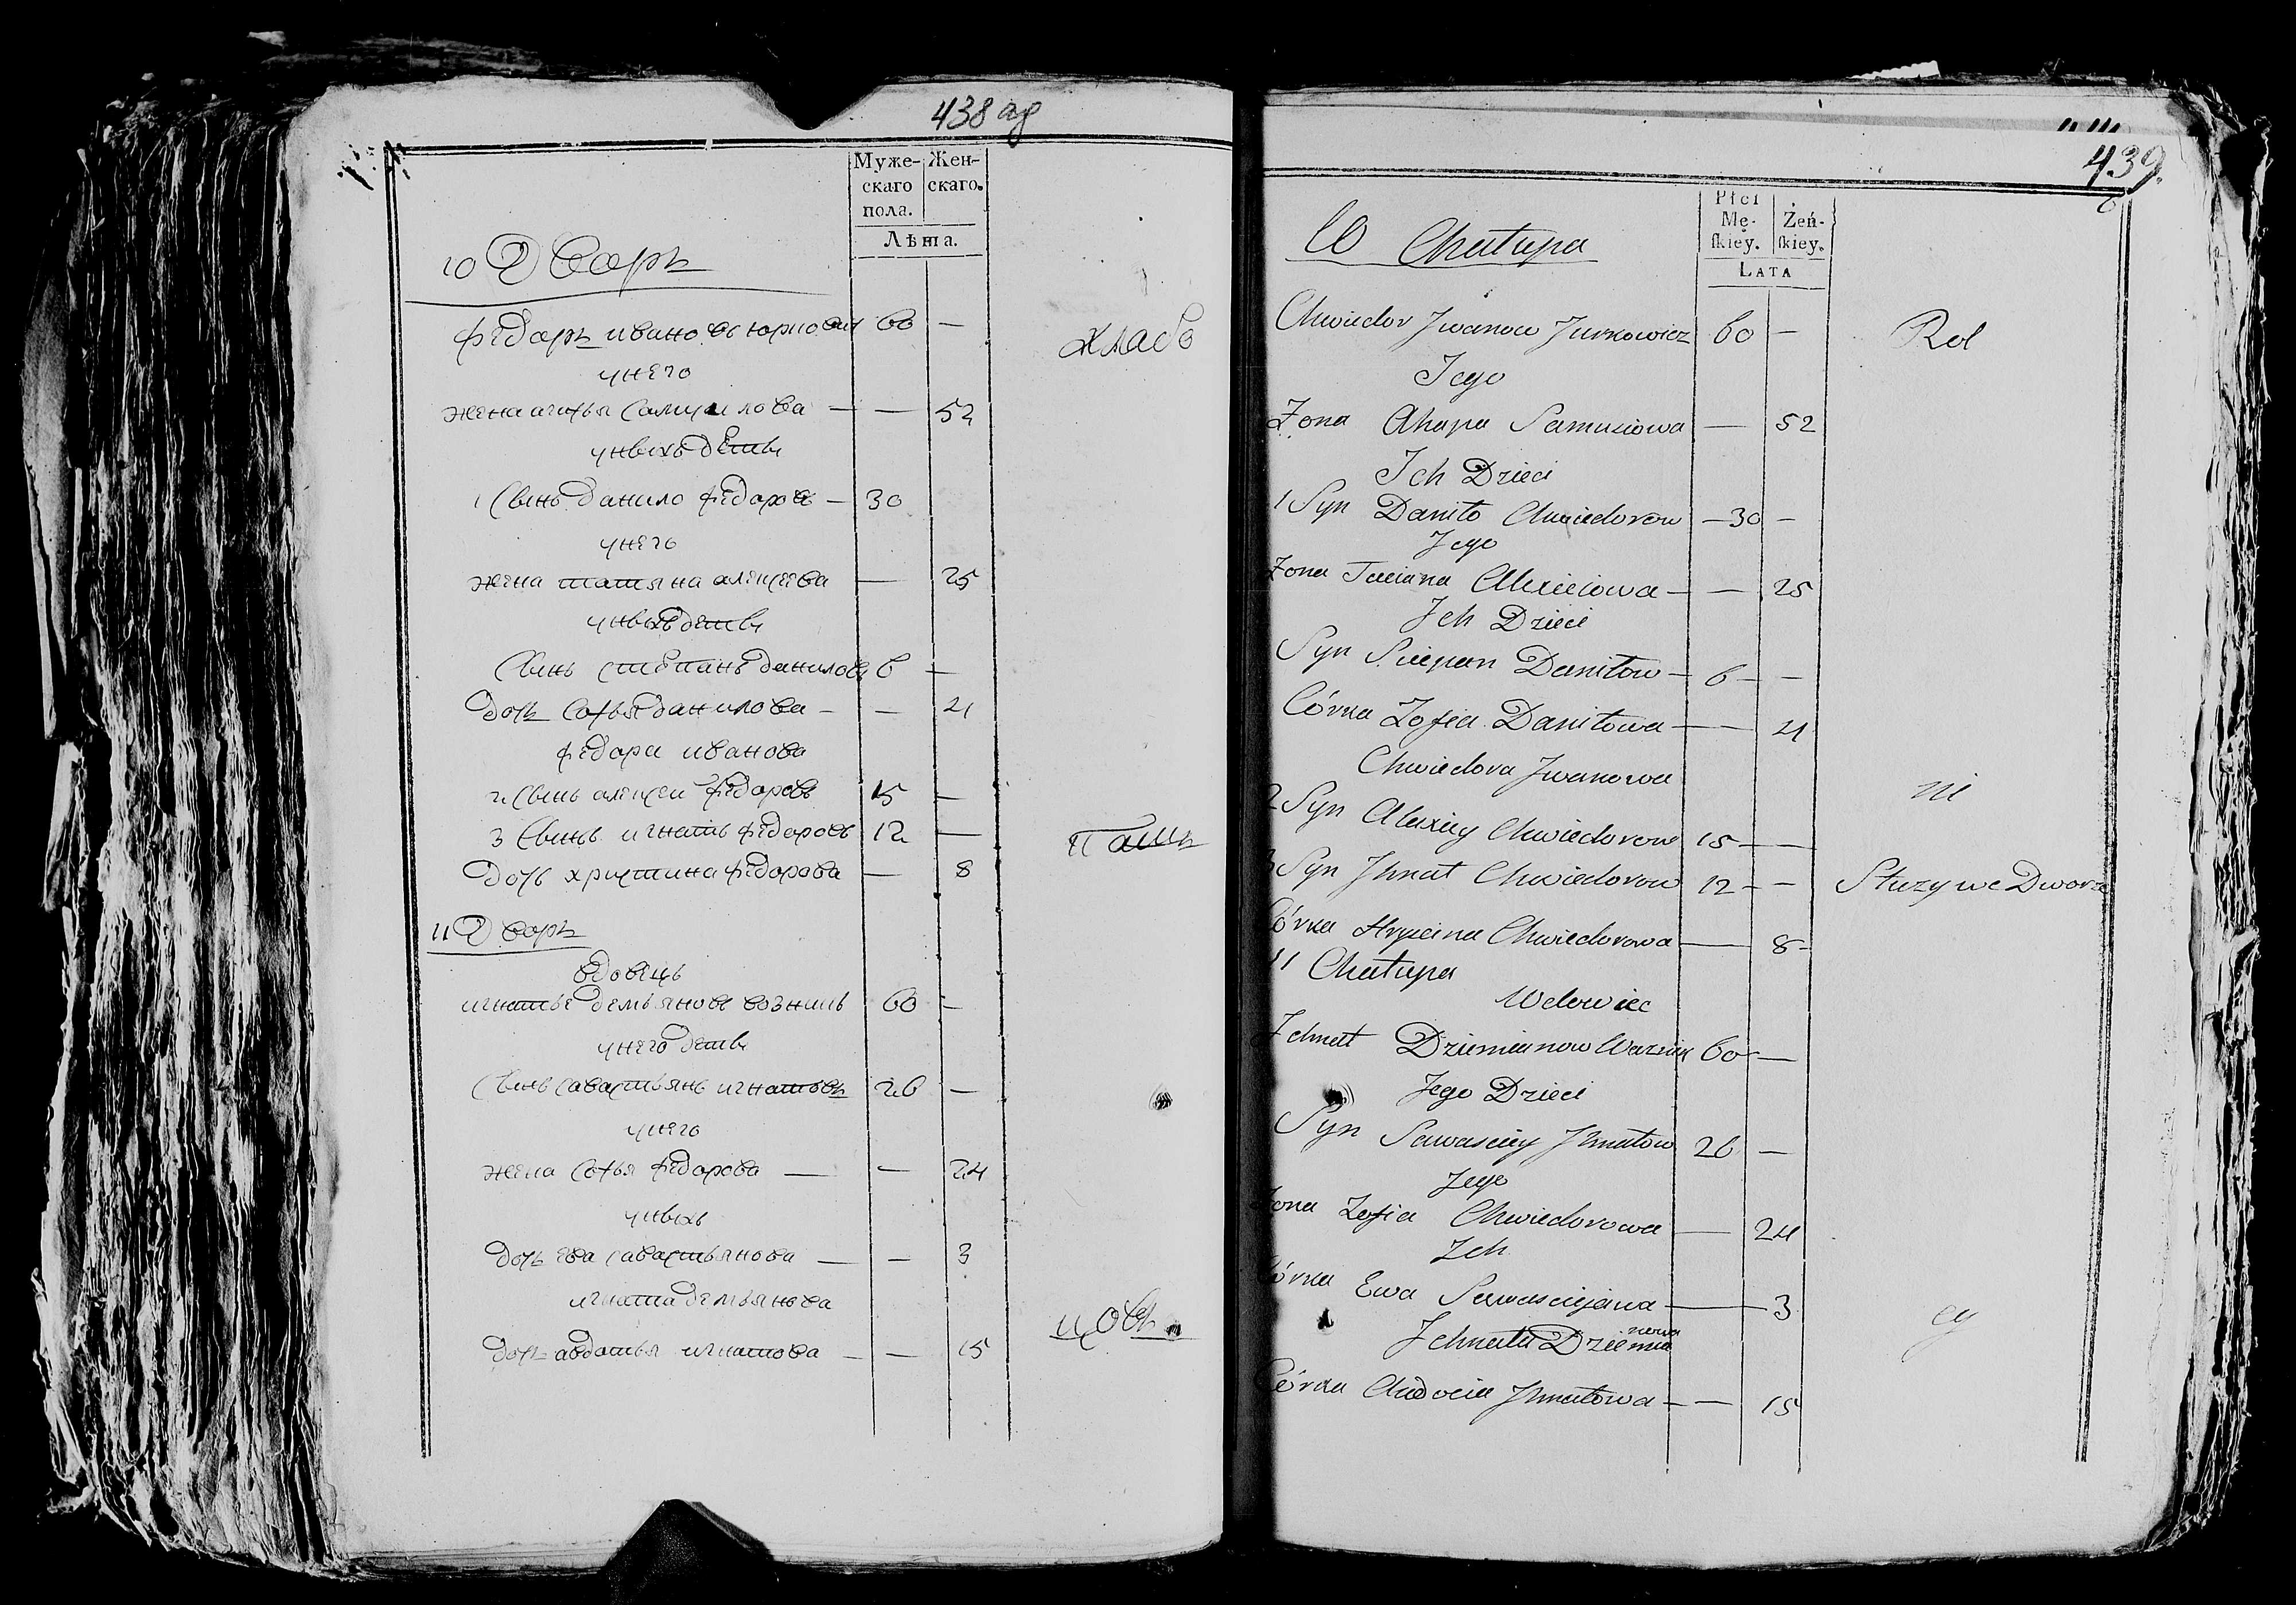 438 ад
Муже-
скаго
пола.
Жен-
скаго.
Лѣта.
10 Дворъ
федоръ ивановъ юрковичь 60 —
унего
жена агафья самуйлова — — 52
унихъ дети
1 Сынь данило федоровъ — 30
унего
жена татьяна алексеева — 25
унихъ дети
Сынь степанъ даниловъ 6 —
дочь софья данилова — — 4
федора иванова
2 Сынь алексеи федоровъ 15 —
3 Сынь игнатъ федоровъ 12 —
дочь христина федорова — 8
хлебо
паш
11 Дворъ
вдовець
игнатье демьяновъ возникъ 60 —
унего дети
Сынь савастьянъ игнатовъ 26 —
унего
жена софья федорова — — 24
унихъ
дочь ева савастьянова — — 3
игната демьянова
дочь авдотья игнатова — — 15
цовъ
439.
Płci
Mę-
ſkiey.
Żeń-
ſkiey.
LATA
10 Chałupa
Chwiedor Jwanow Jurkowicz 60 — Rol
Jego
Żona Ahapa Samusiowa — 52
Jch Dzieci
1 Syn Daniło Chwiedorow — 30 —
Jego
Żona Taciana Alexieiowa — — 25
Jch Dzieci
Syn Sciepan Daniłow — 6 — —
Córka Zofia Daniłowa — 4
Chwiedora Jwanowa
ni
2 Syn Alexiey Chwiedorow 15 — —
3 Syn Jhnat Chwiedorow 12 — — Służy we Dworze
Córka Hryscina Chwiedorowa — 8 -
11 Chałupa
Wdowiec
Jchnat Dziemianow Waznik 60 —
Jego Dzieci
Syn Sawasciey Jhnatow 26 —
Jego
Żona Zofia Chwiedorowa — 24
Jch
Córka Ewa Sawasciejowa — 3
cy
Jchnata Dziemia
nowa
Córka Audocia Jhnatowa — — 15